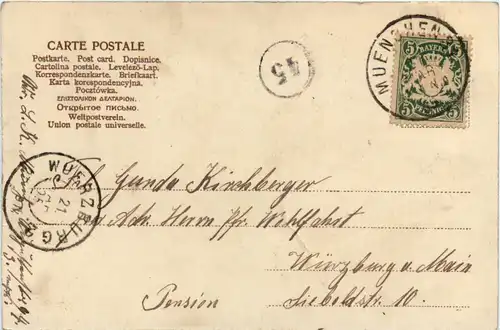 CARTE POSTALE
Postkarte. Post card. Dopisnice.
Cartolina postale. Levelező-Lap.
Korrespondenzkarte. Briefkaart.
Karta korespondencyjna.
Pocztówka.
ΕΠΙΣΤΟΛΙΚΟΝ ΔΕΛΤΑΡΙΟΝ.
Открытое письмо.
Weltpostverein.
Union postale universelle.
45
MUENCHEN
BAYERN
5 5
5 5
WUERZBURG
21
Gunda Kirchberger
Adr. Herrn Pfr. Wohlfahrt
Würzburg a. Main
Pension Sieboldstr. 10.